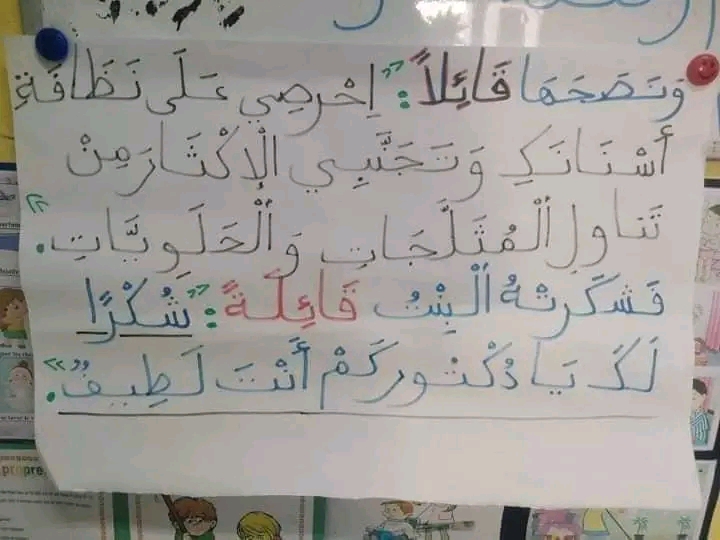 وَنَصَحَهَا قَائِلاً: "اِحْرِصِي عَلَى نَظَافَةِ
أَسْنَانَكِ وَتَجَنَّبِي الْإِكْثَارَ مِنْ
تَناوِلِ ٱلْمُثَلَّجَاتِ وَٱلْحَلَوِيَّاتِ."
فَشَكَرَتْهُ ٱلْبِنْتُ قَائِلَةً: "شُكْرًا
لَكَ يَا دُكْتُور كَمْ أَنْتَ لَطِيفٌ".
propre